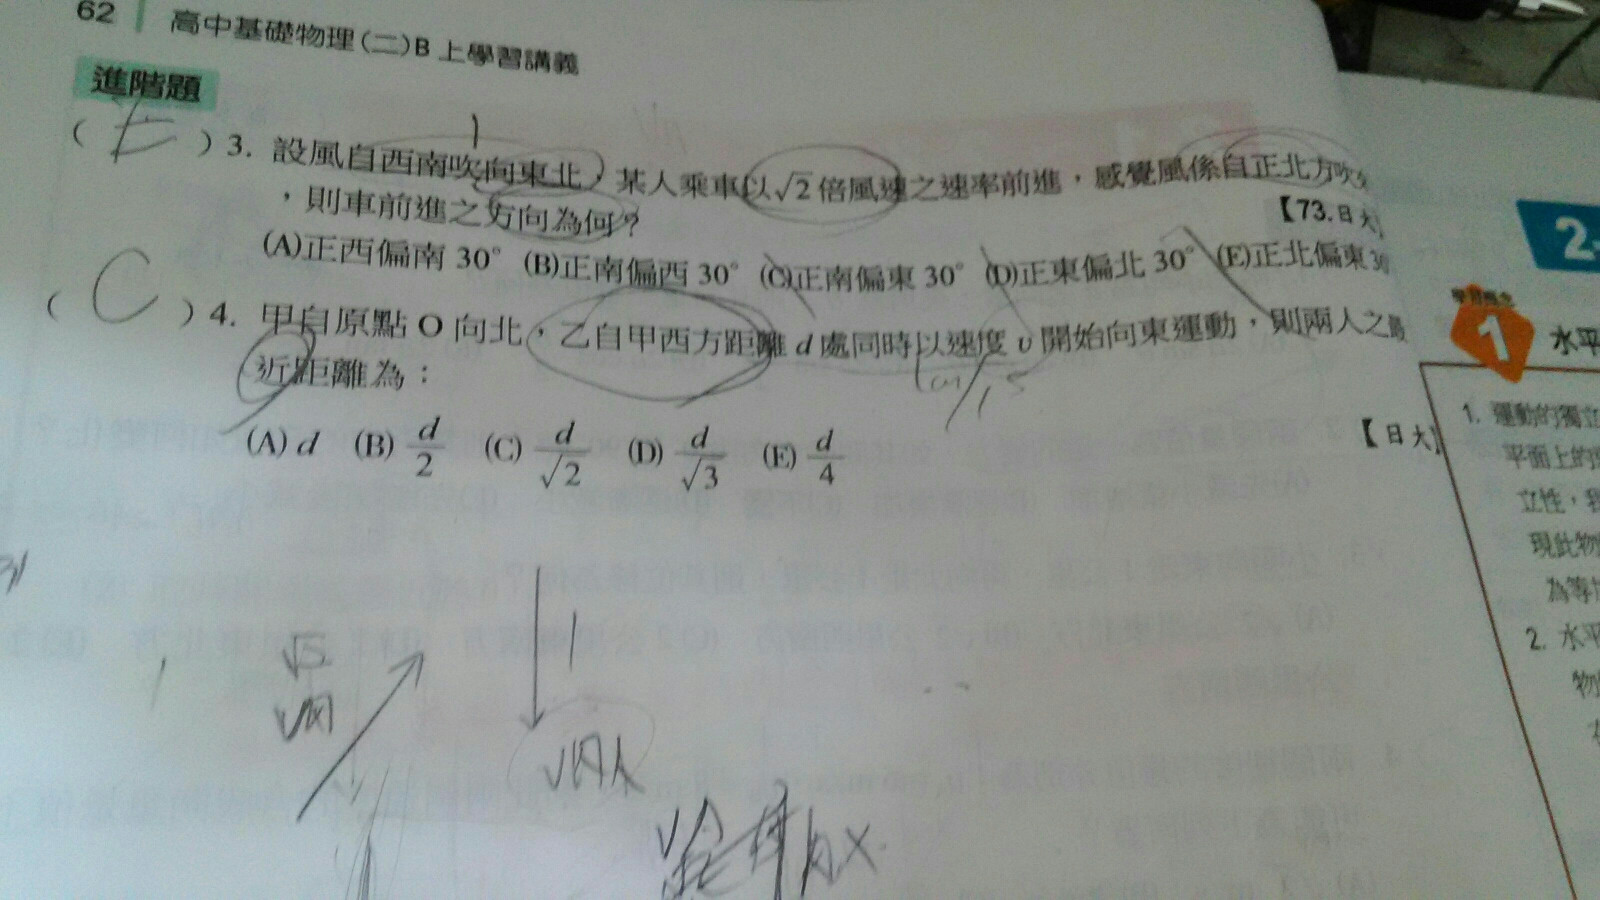 62 高中基礎物理(二)B上學習講義
進階題
( E ) 3. 設風自西南吹向東北，某人乘車以√2倍風速之速率前進，感覺風係自正北方吹
，則車前進之方向為何？
【73.日大】
(A)正西偏南 30° (B)正南偏西 30° (C)正南偏東 30° (D)正東偏北 30° (E)正北偏東
( C ) 4. 甲自原點 O 向北，乙自甲西方距離 d 處同時以速度 υ 開始向東運動，則兩人之最
近距離為：
(A) d (B) d/2 (C) d/√2 (D) d/√3 (E) d/4
【日大】
1
2-
學習概念
1 水平
1. 運動的獨立
平面上的
立性，我
現此物
為等
2. 水平
物